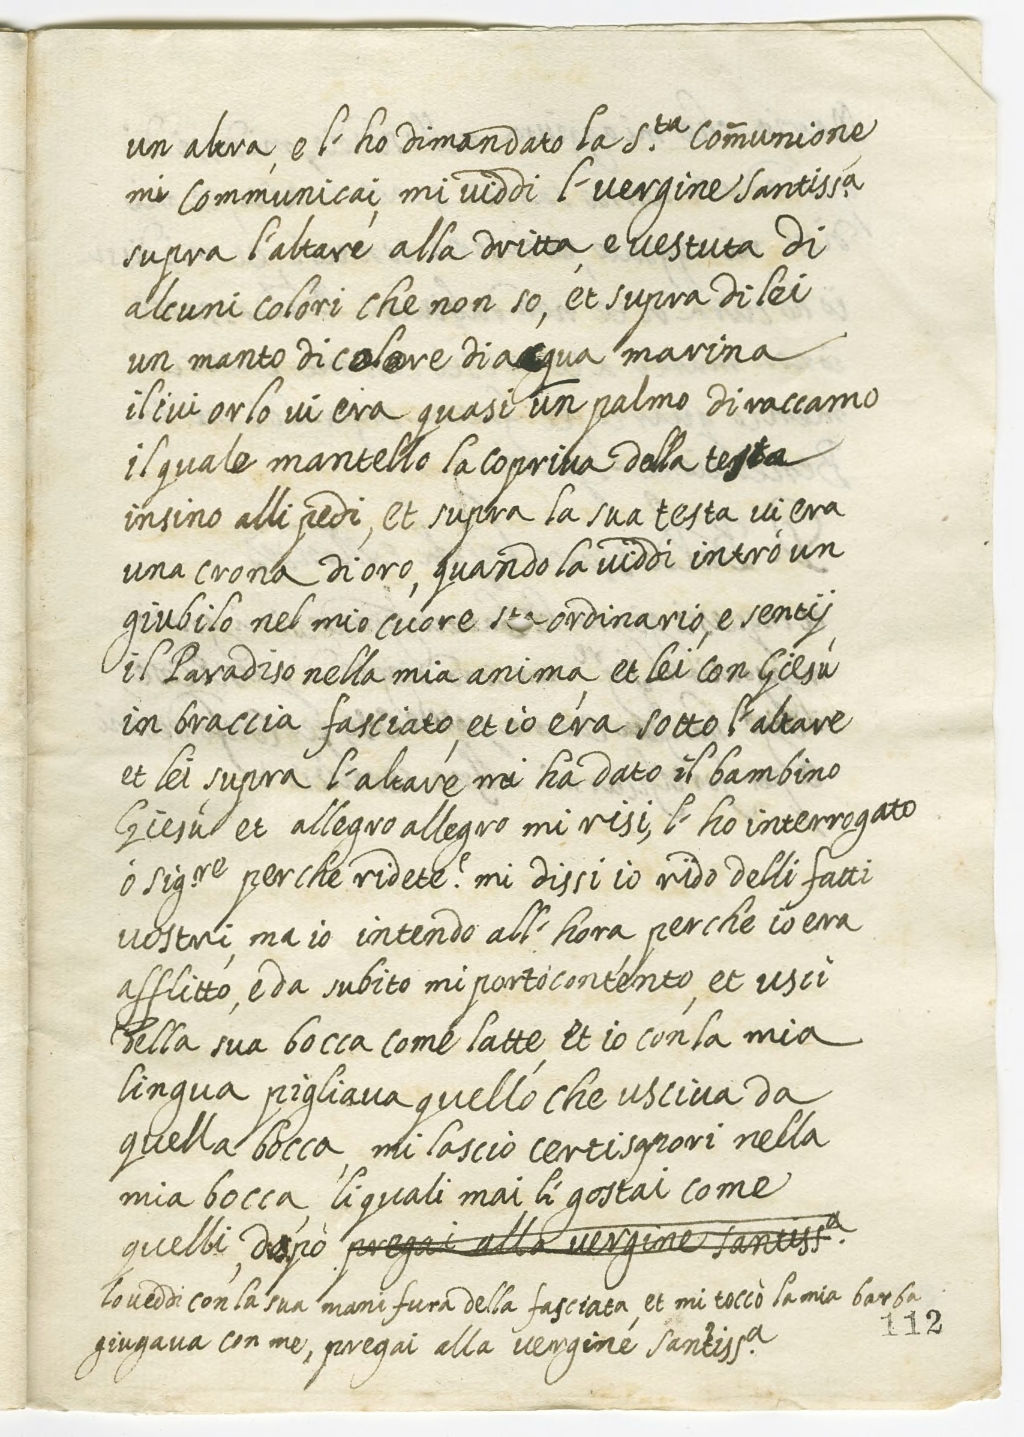 un altra, e l' ho dimandato la S.ta Com̃unione
mi communicai, mi viddi l' vergine Santiss.a
supra l'altare alla dritta, e vestuta di
alcuni colori che non so, et supra di lei
un manto di colore di acqua marina
il cui orlo vi era quasi un palmo di raccamo
il quale mantello la copriua della testa
insino alli pedi, et supra la sua testa vi era
una crona di oro, quando la viddi intrò un
giubilo nel mio cuore staordinario, e sentij
il Paradiso nella mia anima, et lei con Giesù
in braccia fasciato, et io era sotto l'altare
et lei supra l'altare mi ha dato il bambino
Giesù et allegro allegro mi risi, l' ho interrogato
ò sig.re perche ridete? mi dissi io rido delli fatti
vostri, ma io intendo all' hora perche io era
afflitto, e da subito mi portò contento, et usci
della sua bocca come latte, et io con la mia
lingua pigliaua quello che usciua da
quella bocca, mi lasciò certi sapori nella
mia bocca li quali mai li gostai come
quelli, dopò pregai alla vergine santiss.a
lo veddi con la sua mani fura della fasciata, et mi toccò la mia barba
giugaua con me, pregai alla vergine santiss.a
112